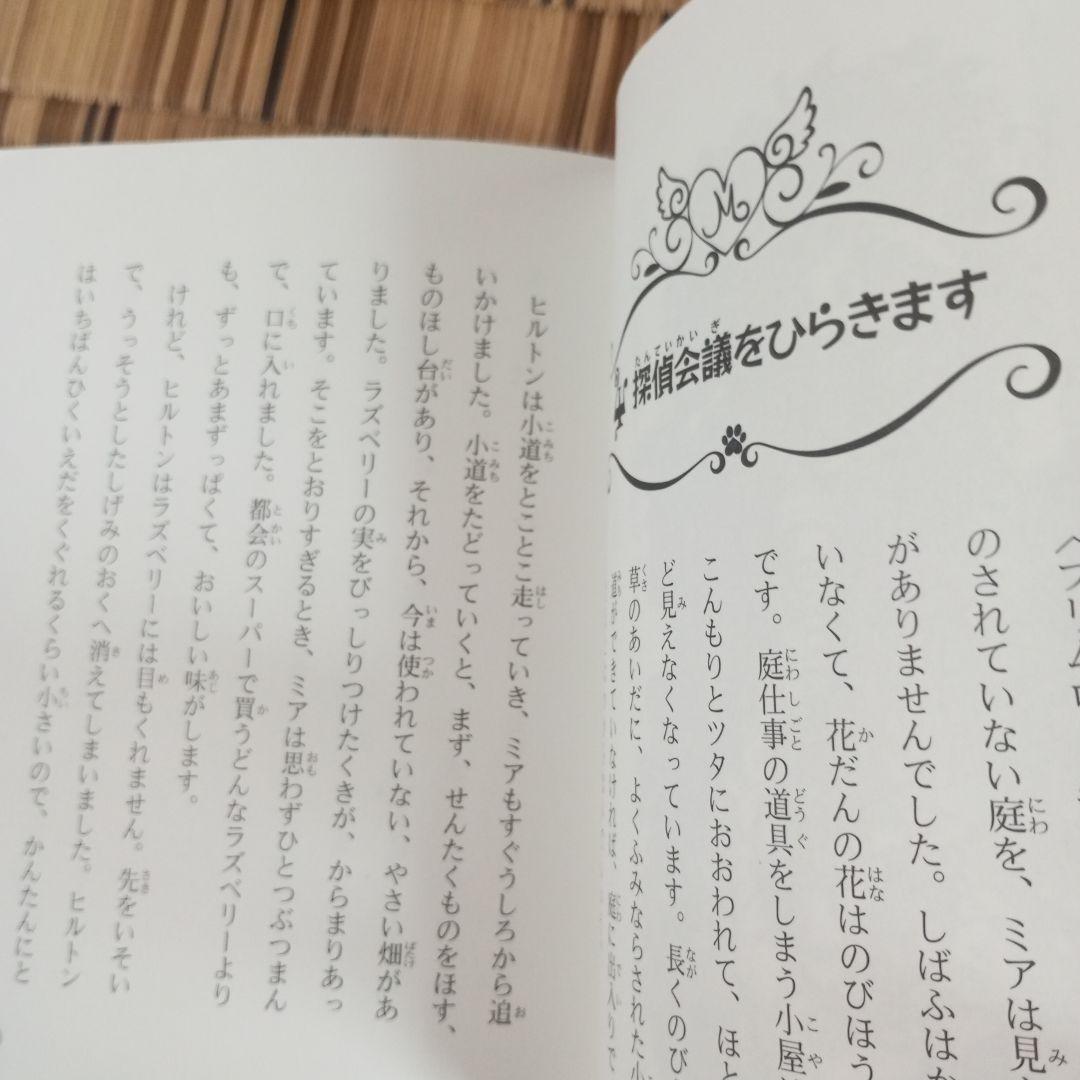 M
4 探偵会議をひらきます
のされていない庭を、ミアは見
がありませんでした。しばふは
いなくて、花だんの花はのびほう
です。庭仕事の道具をしまう小屋
こんもりとツタにおおわれて、ほと
ど見えなくなっています。長くのび
草のあいだに、よくふみならされた小
道ができていなければ、庭に出入りで
ヒルトンは小道をとことこ走っていき、ミアもすぐうしろから追
いかけました。小道をたどっていくと、まず、せんたくものをほす、
ものほし台があり、それから、今は使われていない、やさい畑があ
りました。ラズベリーの実をびっしりつけたくきが、からまりあっ
ています。そこをとおりすぎるとき、ミアは思わずひとつぶつまん
で、口に入れました。都会のスーパーで買うどんなラズベリーより
も、ずっとあまずっぱくて、おいしい味がします。
けれど、ヒルトンはラズベリーには目もくれません。先をいそい
で、うっそうとしたしげみのおくへ消えてしまいました。ヒルトン
はいちばんひくいえだをくぐれるくらい小さいので、かんたんにと